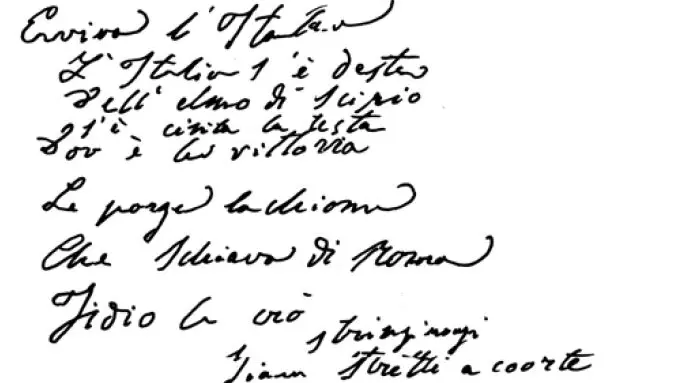 Evviva l'Italia
L'Italia s'è desta
Dell'elmo di Scipio
s'è cinta la testa
Dov'è la vittoria
Le porga la chioma
Che schiava di Roma
Iddio la creò
stringiamoci
siam stretti a coorte